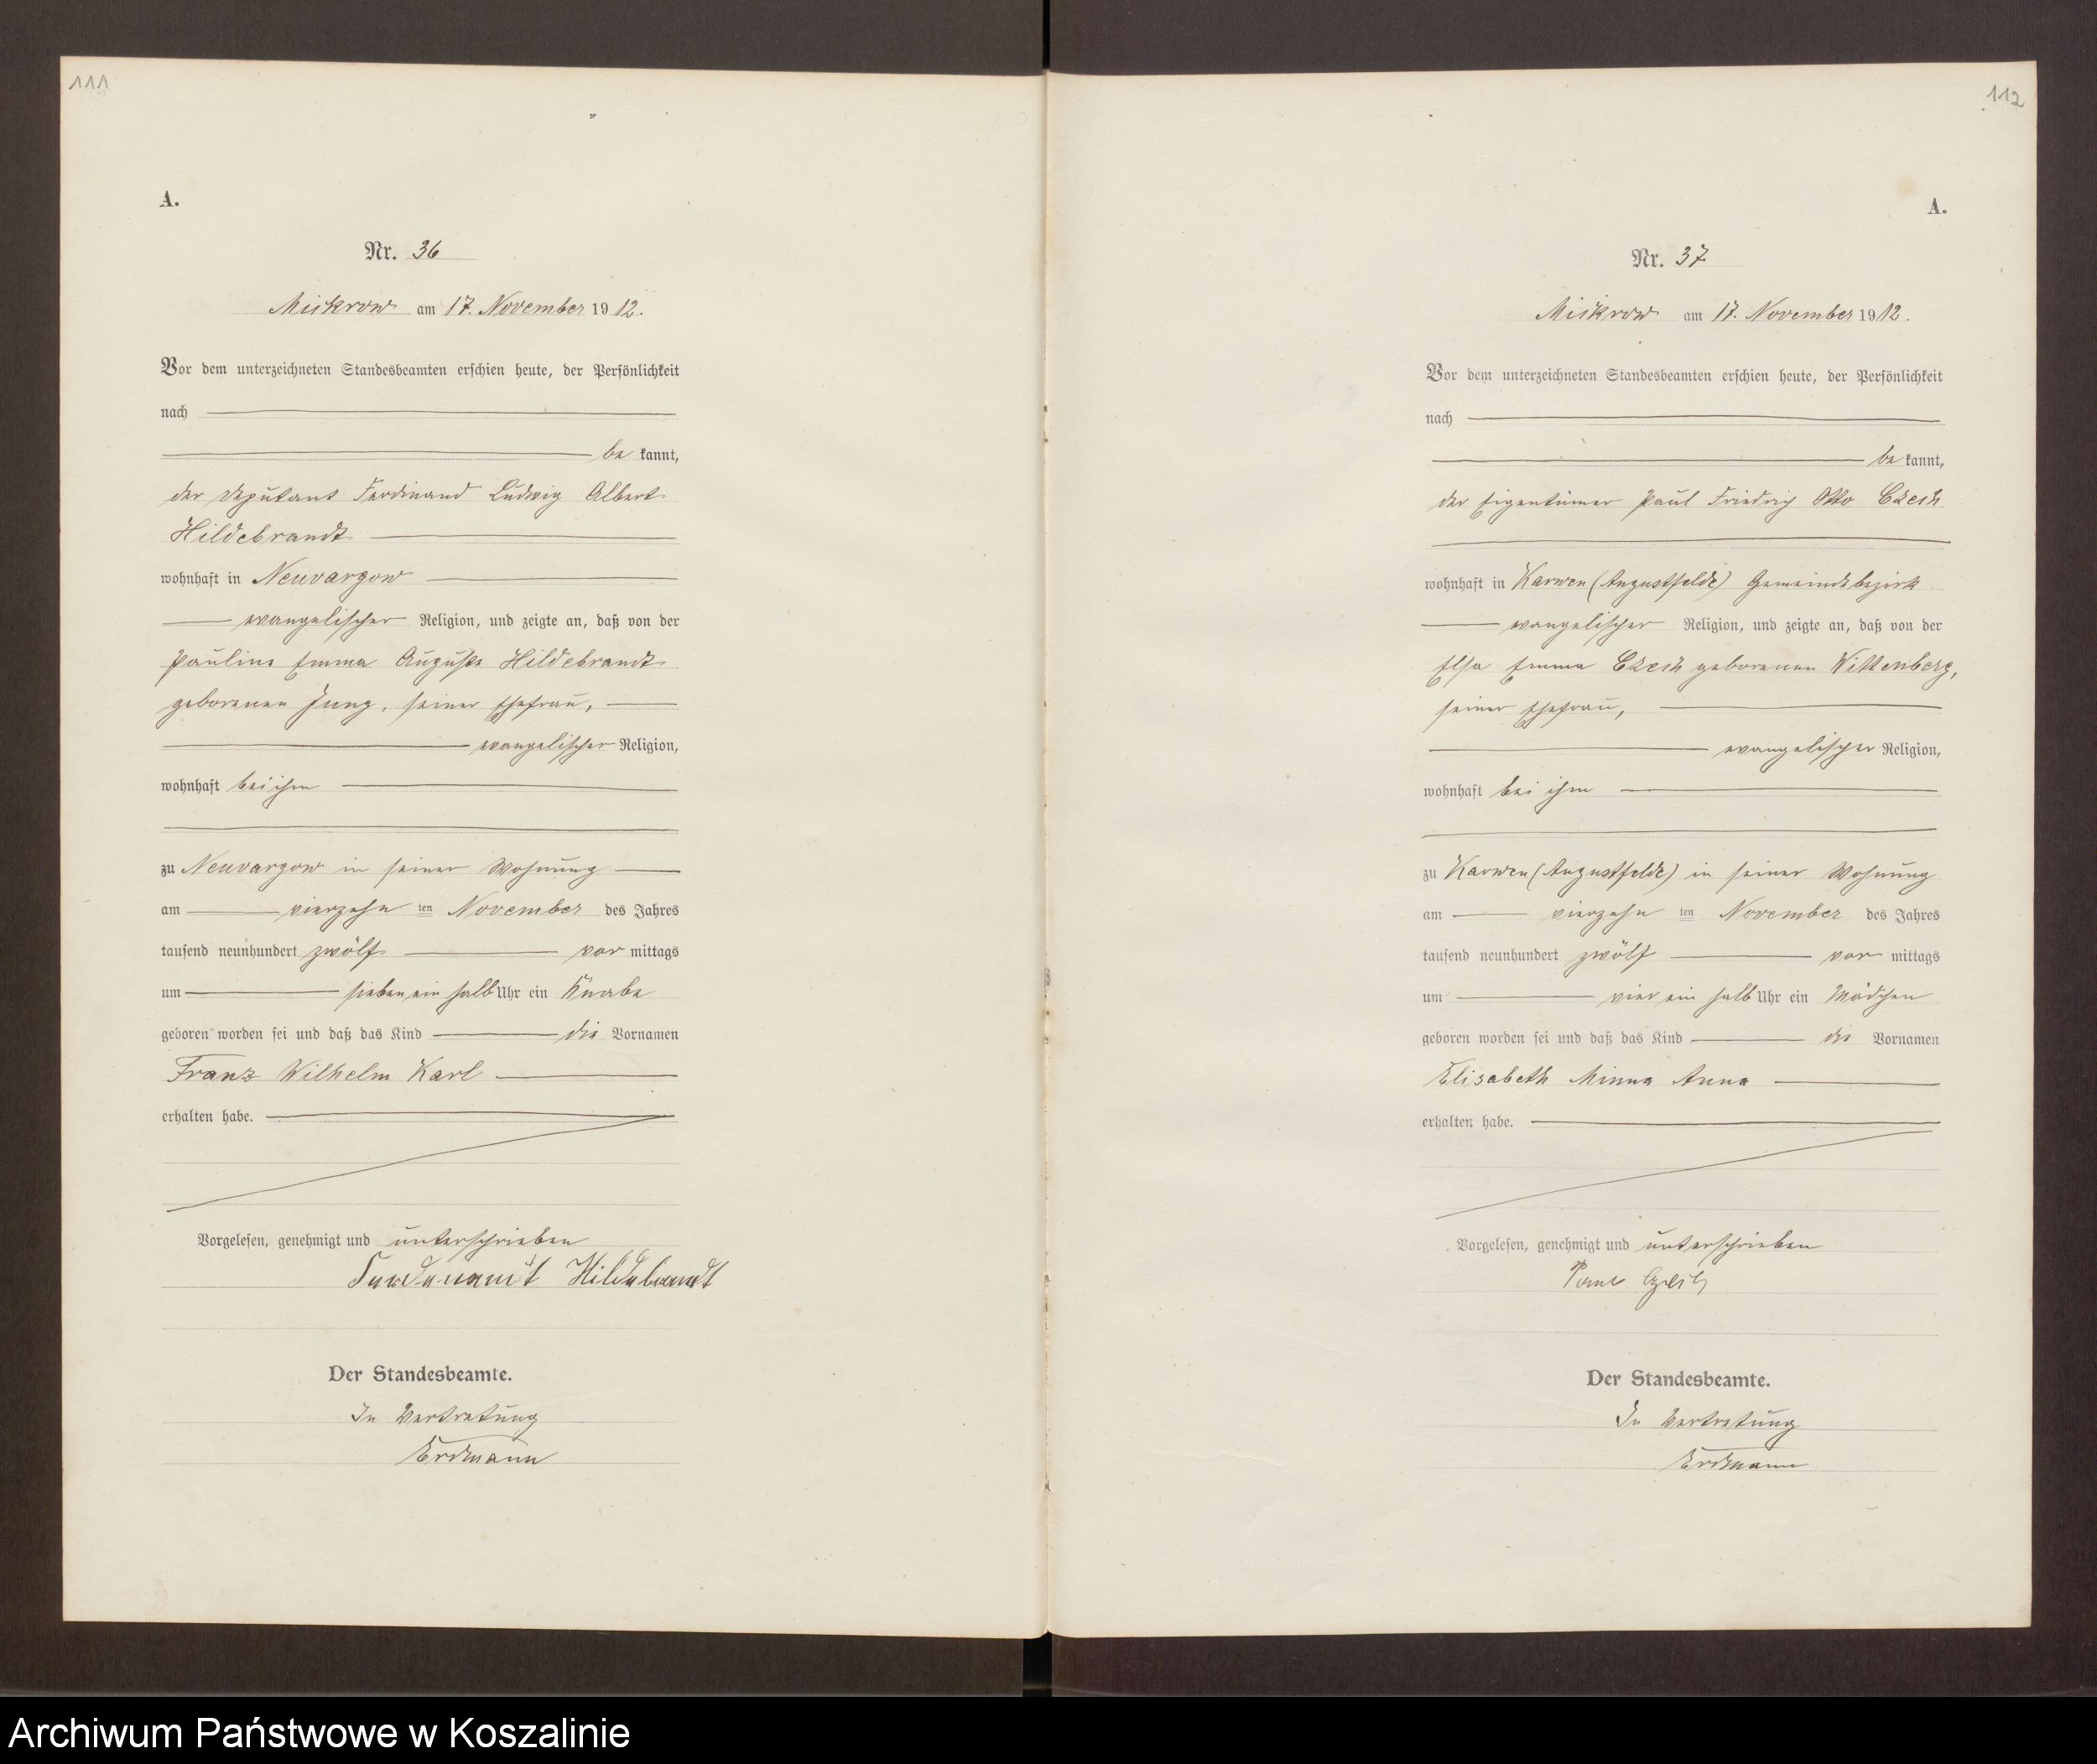 111
A.
Nr. 36
Mickrow am 17. November 1912.
Vor dem unterzeichneten Standesbeamten erschien heute, der Persönlichkeit
nach
be kannt,
der Deputant Ferdinand Ludwig Albert
Hildebrandt
wohnhaft in Neuvargow
evangelischer Religion, und zeigte an, daß von der
Pauline Emma Auguste Hildebrandt
geborenen Jung, seiner Ehefrau,
evangelischer Religion,
wohnhaft bei ihm
zu Neuvargow in seiner Wohnung
am vierzehn ten November des Jahres
tausend neunhundert zwölf vor mittags
um sieben ein halb Uhr ein Knabe
geboren worden sei und daß das Kind die Vornamen
Franz Wilhelm Karl
erhalten habe.
Vorgelesen, genehmigt und unterschrieben
Hildebrandt
Der Standesbeamte.
In Vertretung
Erdmann
112
A.
Nr. 37
Mickrow am 17. November 1912.
Vor dem unterzeichneten Standesbeamten erschien heute, der Persönlichkeit
nach
be kannt,
der Eigentümer Paul Friedrich Otto Czech
wohnhaft in Karwen (Augustfelde) Gemeindebezirk
evangelischer Religion, und zeigte an, daß von der
Elsa Emma Czech geborenen Wittenberg,
seiner Ehefrau,
evangelischer Religion,
wohnhaft bei ihm
zu Karwen (Augustfelde) in seiner Wohnung
am vierzehn ten November des Jahres
tausend neunhundert zwölf vor mittags
um vier ein halb Uhr ein Mädchen
geboren worden sei und daß das Kind die Vornamen
Elisabeth Minna Anna
erhalten habe.
Vorgelesen, genehmigt und unterschrieben
Paul Czech
Der Standesbeamte.
In Vertretung
Erdmann
Archiwum Państwowe w Koszalinie